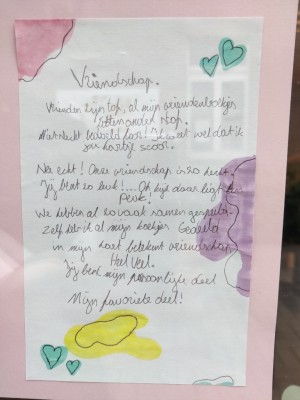 Vriendschap.
Vrienden zijn top, al mijn vriendenboekjes
zitten onder stop.
Niet slecht hoor! Ik weet wel dat ik
jou hartje scoor.
Nee echt! Onze vriendschap is zo hecht.
Jij bent zo leuk!.... Oh kijk daar ligt een
Peuk!
We hebben al zo vaak samen gespeeld.
Zelf heb ik al mijn koekjes Gedeeld
in mijn hart betekent vriendschap
Heel Veel.
Jij bent mijn persoonlijke deel
Mijn favoriete deel!